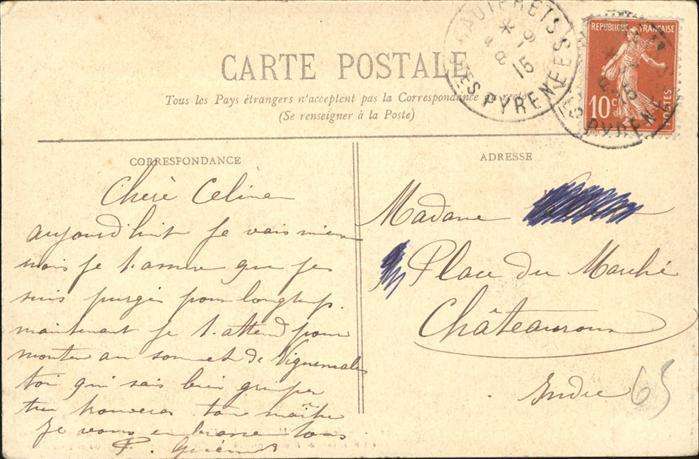 CARTE POSTALE
Tous les Pays étrangers n'acceptent pas la Correspondance au recto
(Se renseigner à la Poste)
REPUBLIQUE FRANÇAISE
10 c
POSTES
CAUTERETS
8 - 9
15
HTES PYRENEES
CORRESPONDANCE
ADRESSE
Chère Celine
aujourd'huit je vais mieux
mais je t'assure que je
suis purgée pour longtemp.
maintenant je t'attend pour
monter au sommet de Vignemale
toi qui sais bien grimper
tu trouveras ton maître
Je vous embrasse tous
Madame
Place du Marché
Châteauroux
Indre
65